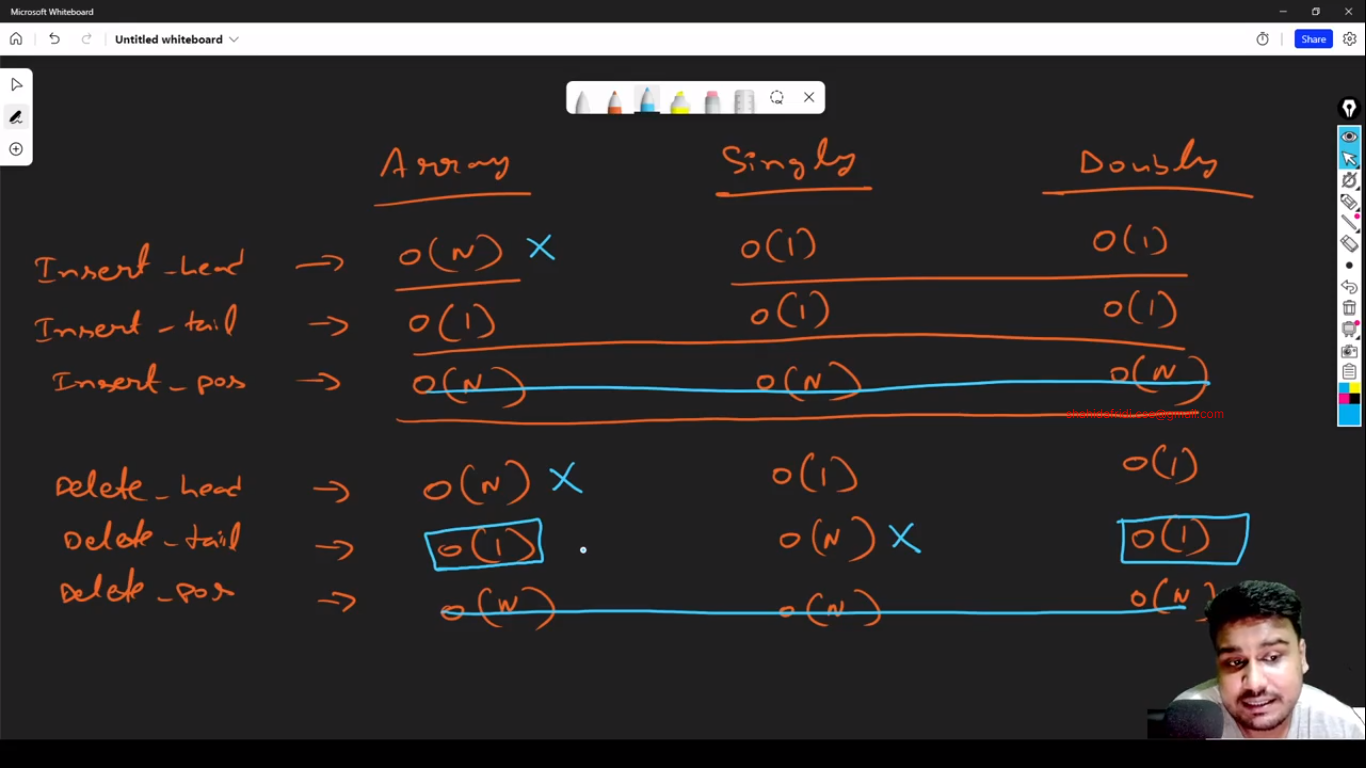 Microsoft Whiteboard
Untitled whiteboard
Share
Array Singly Doubly
Insert_head → O(N) X O(1) O(1)
Insert_tail → O(1) O(1) O(1)
Insert_pos → O(N) O(N) O(N)
Delete_head → O(N) X O(1) O(1)
Delete_tail → O(1) O(N) X O(1)
Delete_pos → O(N) O(N) O(N)